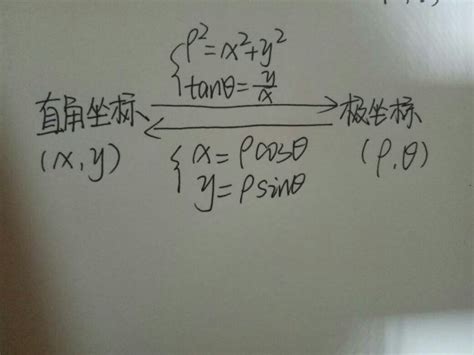 ρ²=x²+y²
tanθ=y/x
直角坐标 极坐标
(x,y) (ρ,θ)
x=ρcosθ
y=ρsinθ